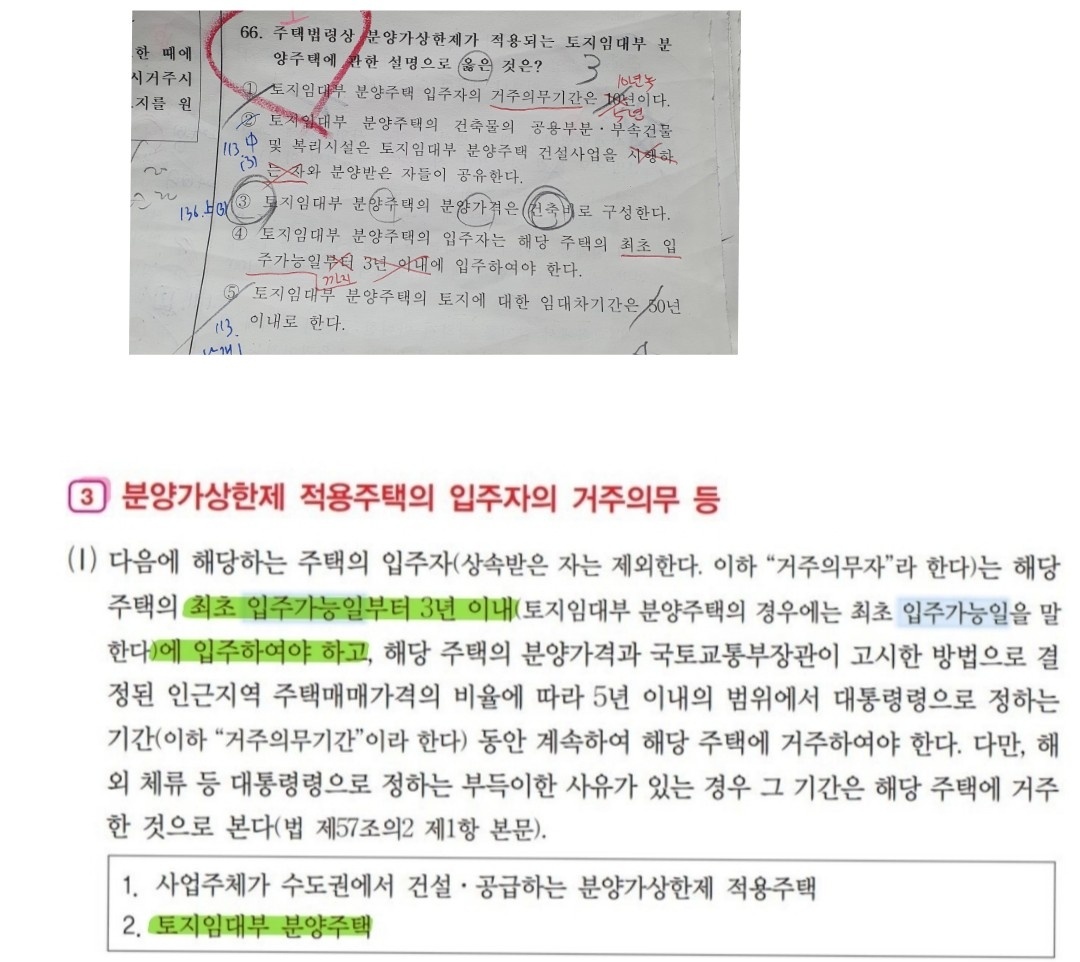 한 때에
시거주시
지를 원
66. 주택법령상 분양가상한제가 적용되는 토지임대부 분
양주택에 관한 설명으로 옳은 것은?
3
10년 녹
① 토지임대부 분양주택 입주자의 거주의무기간은 10년이다.
5년
② 토지임대부 분양주택의 건축물의 공용부분·부속건물
113 中
및 복리시설은 토지임대부 분양주택 건설사업을 시행하
(3)
는 자와 분양받은 자들이 공유한다.
136 上(3)
③ 토지임대부 분양주택의 분양가격은 건축비로 구성한다.
④ 토지임대부 분양주택의 입주자는 해당 주택의 최초 입
주가능일부터 3년 이내에 입주하여야 한다.
까지
⑤ 토지임대부 분양주택의 토지에 대한 임대차기간은 50년
이내로 한다.
113.
3 분양가상한제 적용주택의 입주자의 거주의무 등
(1) 다음에 해당하는 주택의 입주자(상속받은 자는 제외한다. 이하 “거주의무자”라 한다)는 해당
주택의 최초 입주가능일부터 3년 이내(토지임대부 분양주택의 경우에는 최초 입주가능일을 말
한다)에 입주하여야 하고, 해당 주택의 분양가격과 국토교통부장관이 고시한 방법으로 결
정된 인근지역 주택매매가격의 비율에 따라 5년 이내의 범위에서 대통령령으로 정하는
기간(이하 “거주의무기간”이라 한다) 동안 계속하여 해당 주택에 거주하여야 한다. 다만, 해
외 체류 등 대통령령으로 정하는 부득이한 사유가 있는 경우 그 기간은 해당 주택에 거주
한 것으로 본다(법 제57조의2 제1항 본문).
1. 사업주체가 수도권에서 건설·공급하는 분양가상한제 적용주택
2. 토지임대부 분양주택